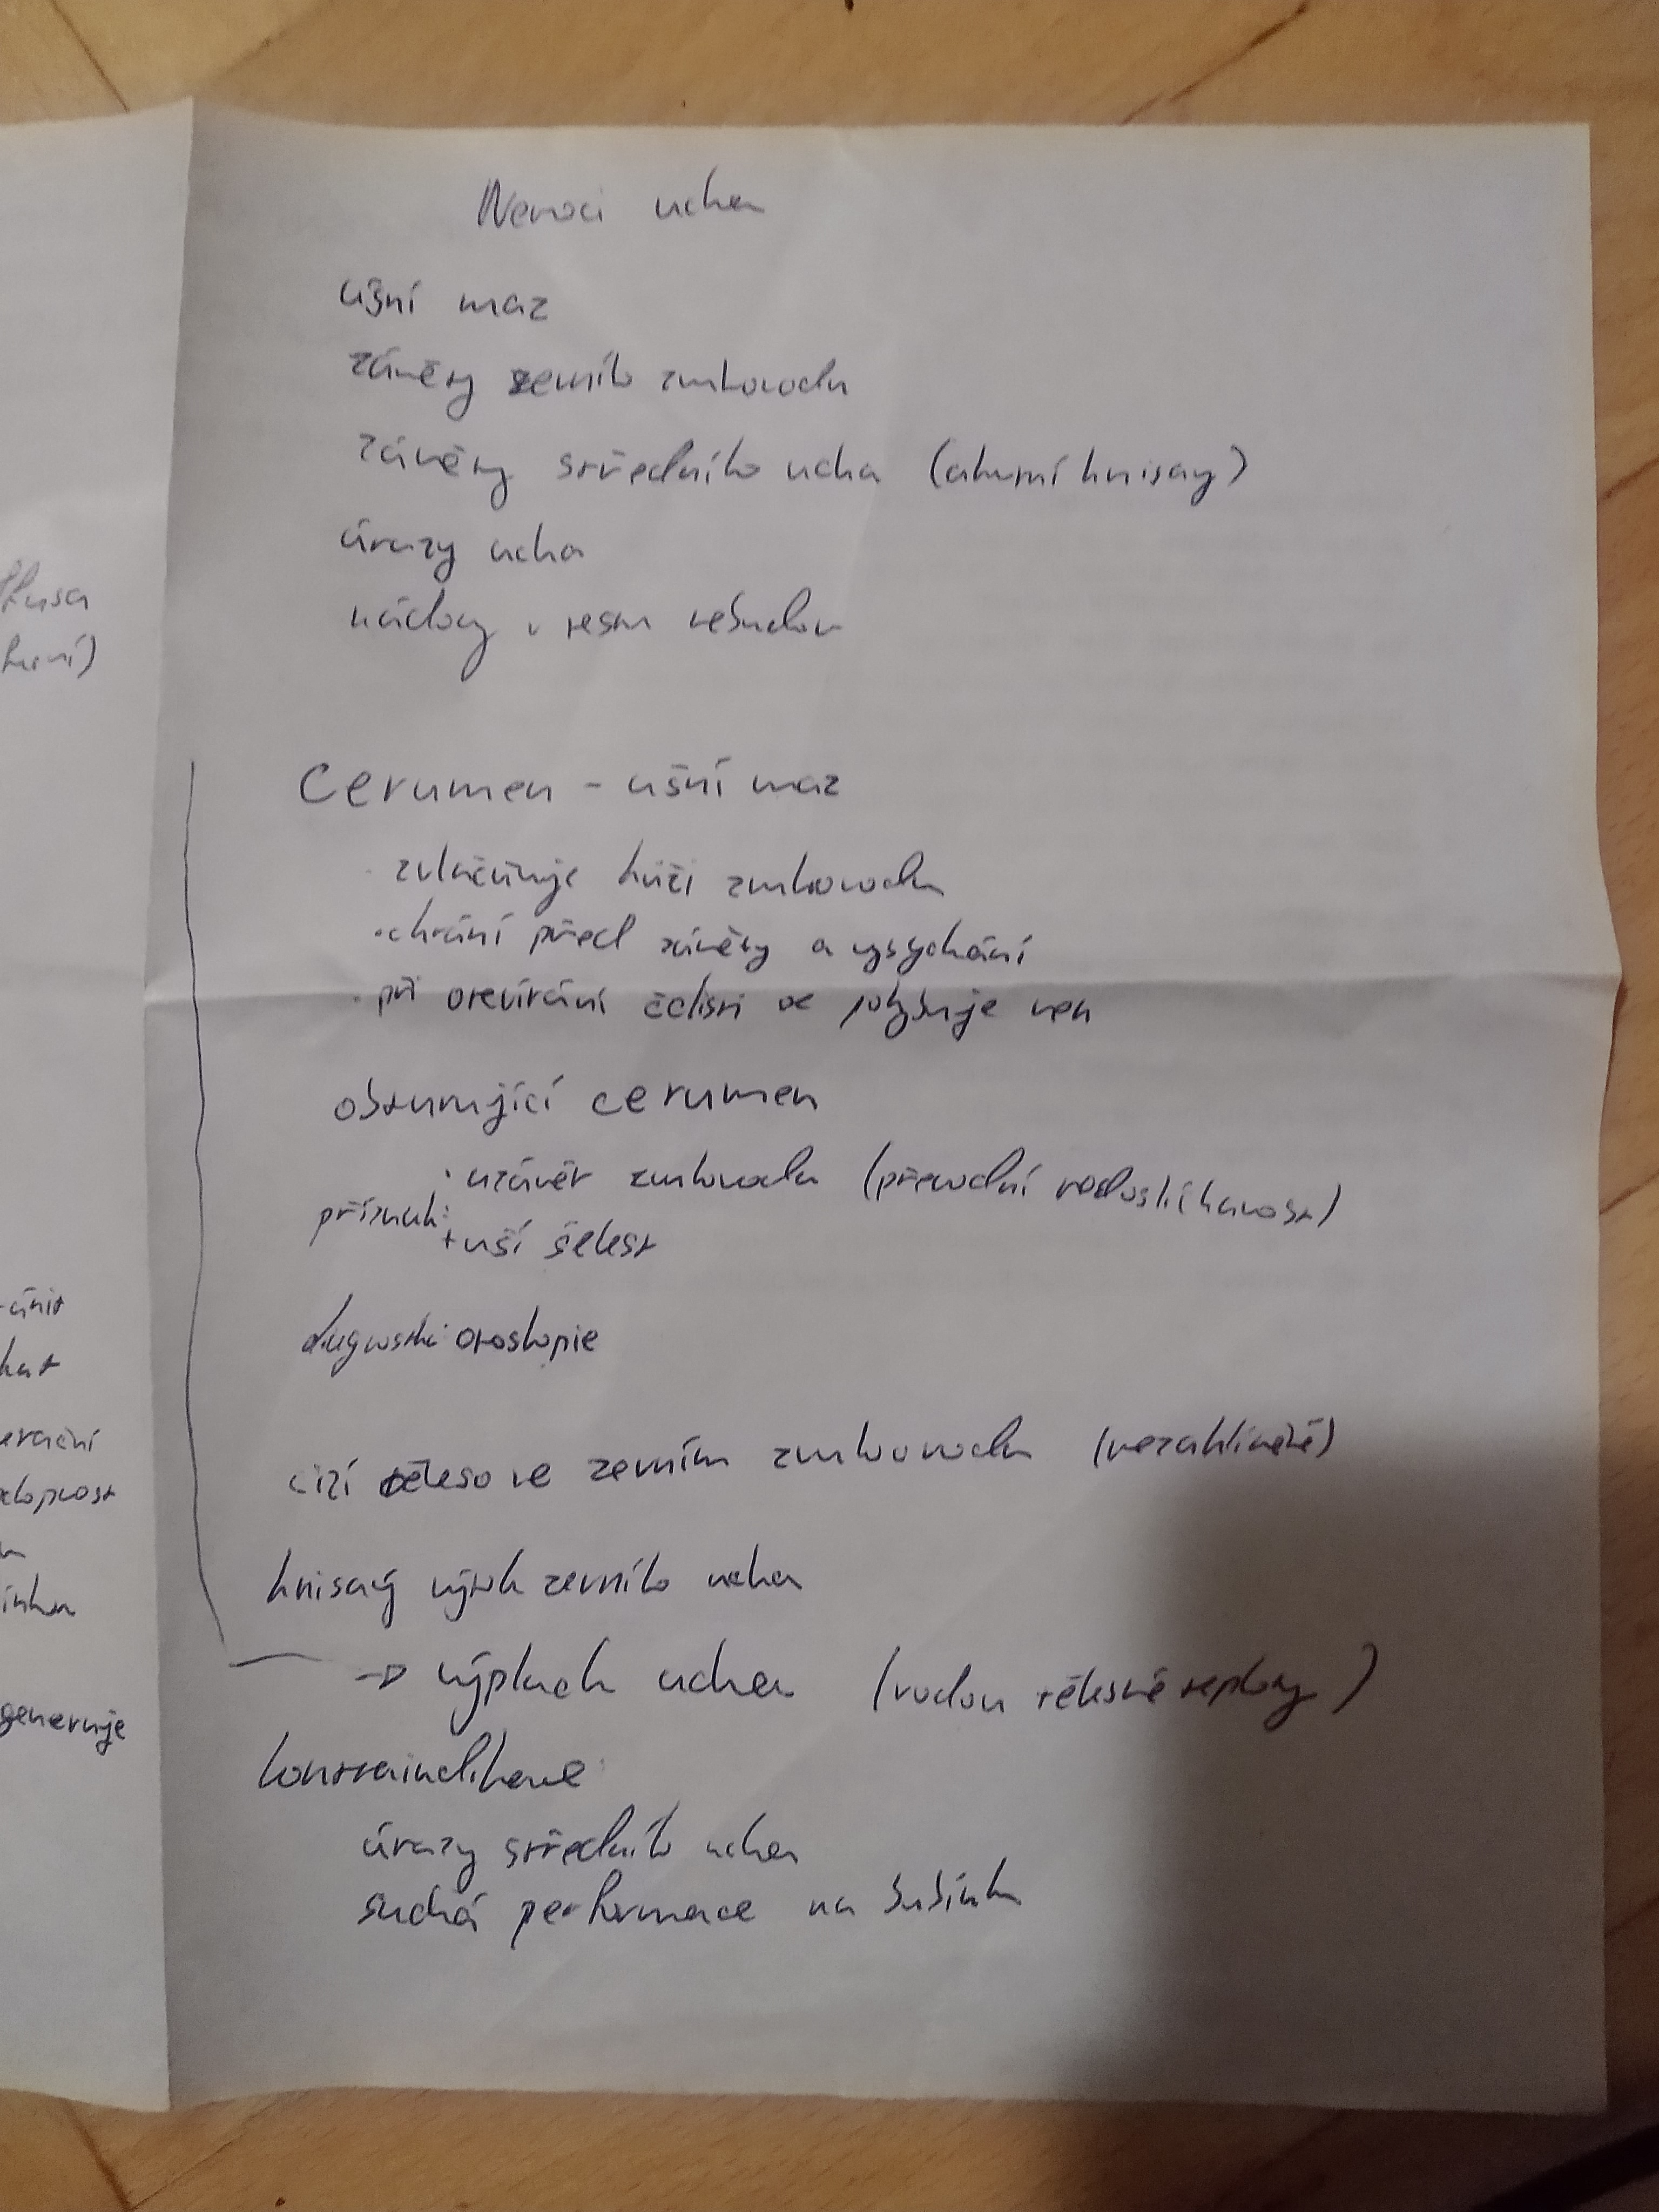 Nemoci ucha
ušní maz
záněty zevního zvukovodu
záněty středního ucha (akutní hnisavý)
úrazy ucha
nádory v
Cerumen - ušní maz
· zvláčňuje kůži zvukovodu
· chrání před záněty a vysychání
· při otevírání čelisti se pohybuje ven
obturující cerumen
· uzávěr zvukovodu (převodní nedoslýchavost)
příznak:
+ uší šelest
diagnostika: otoskopie
cizí těleso ve zevním zvukovodu (nezáhlinětě)
hnisavý výtok zevního ucha
→ výplach ucha (vodou tělesné teploty)
kontraindikace
úrazy středního ucha
suchá performace na bubínku
erační
generuje